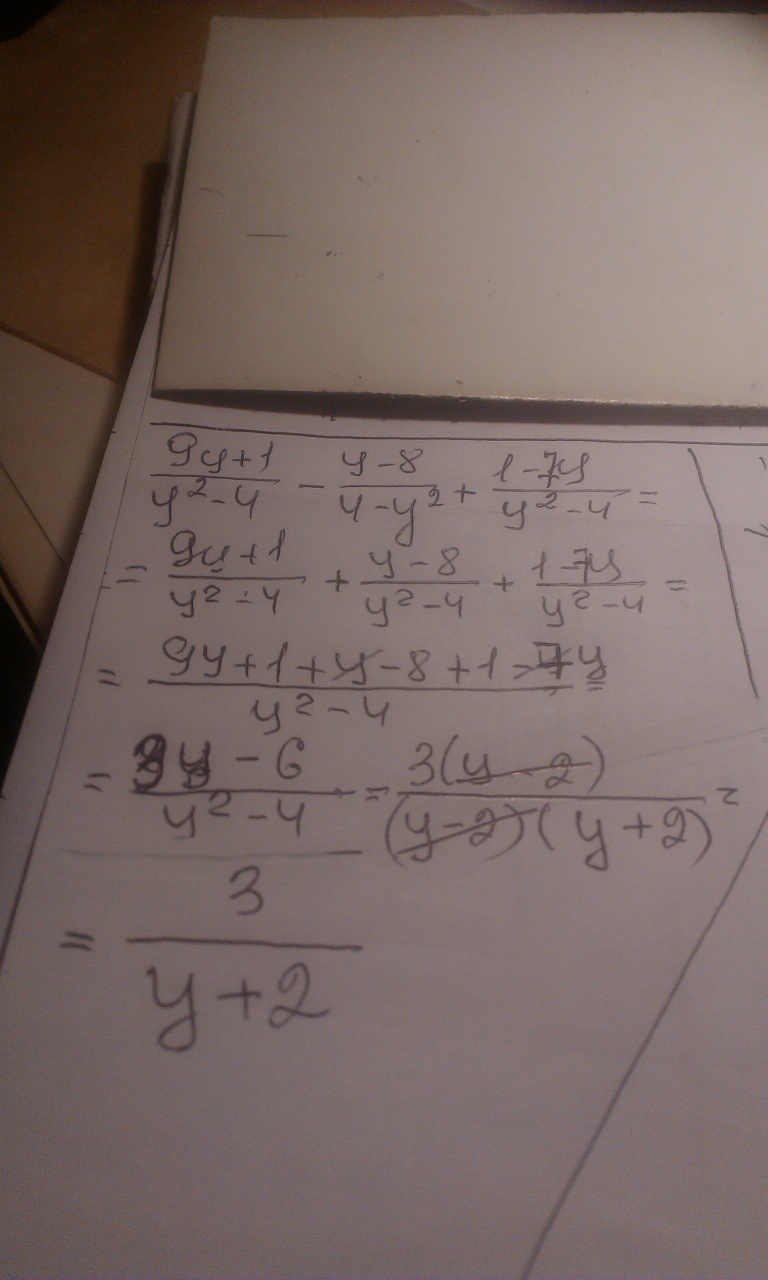 (9y+1)/(y²-4) - (y-8)/(4-y²) + (1-7y)/(y²-4) =
= (9y+1)/(y²-4) + (y-8)/(y²-4) + (1-7y)/(y²-4) =
= (9y+1+y-8+1-7y)/(y²-4) =
= (3y-6)/(y²-4) = 3(y-2)/((y-2)(y+2)) =
= 3/(y+2)